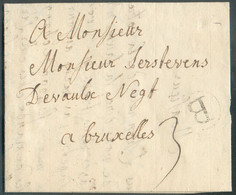 A Monsieur
Monsieur Serstevens
Devaulx Negt
a bruxelles 3
B